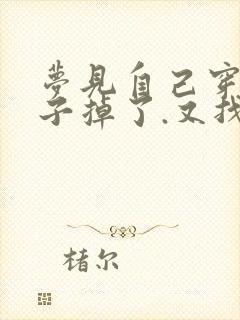 夢見自己穿
子掉了.又找
楮尔